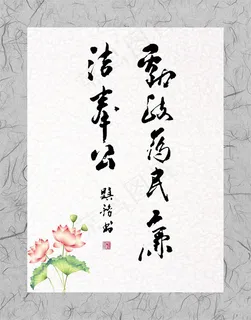 勤政為民廉
洁奉公